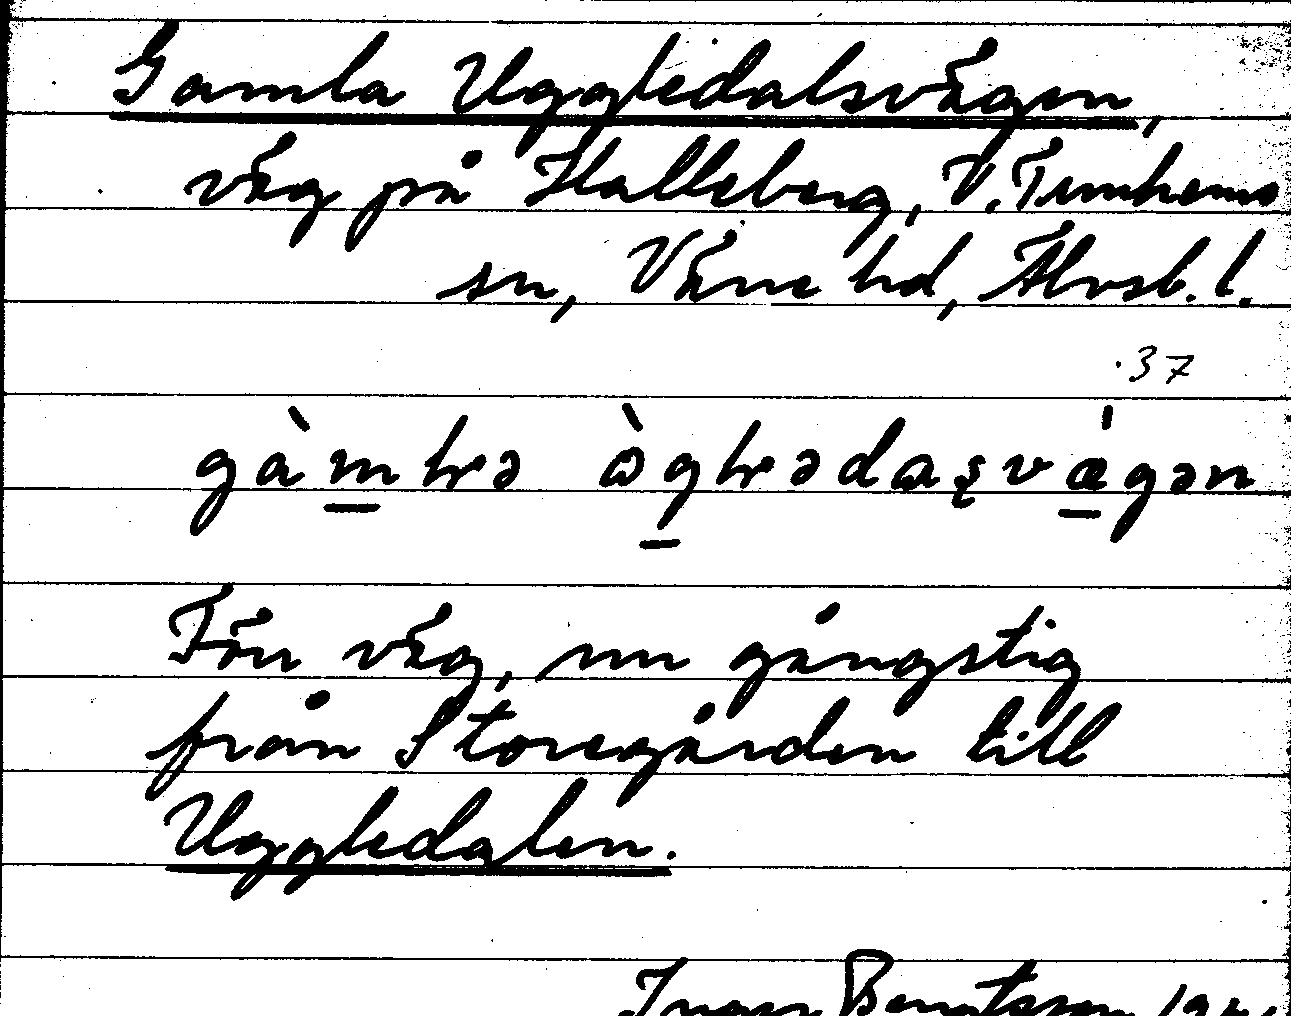 Gamla Uggledalsvägen,
väg på Halleberg, V. Tunhems
sn, Väne hd, Älvsb. l.
37
Förr väg, nu gångstig
från Storegården till
Uggledalen.
Inger Bengtsson